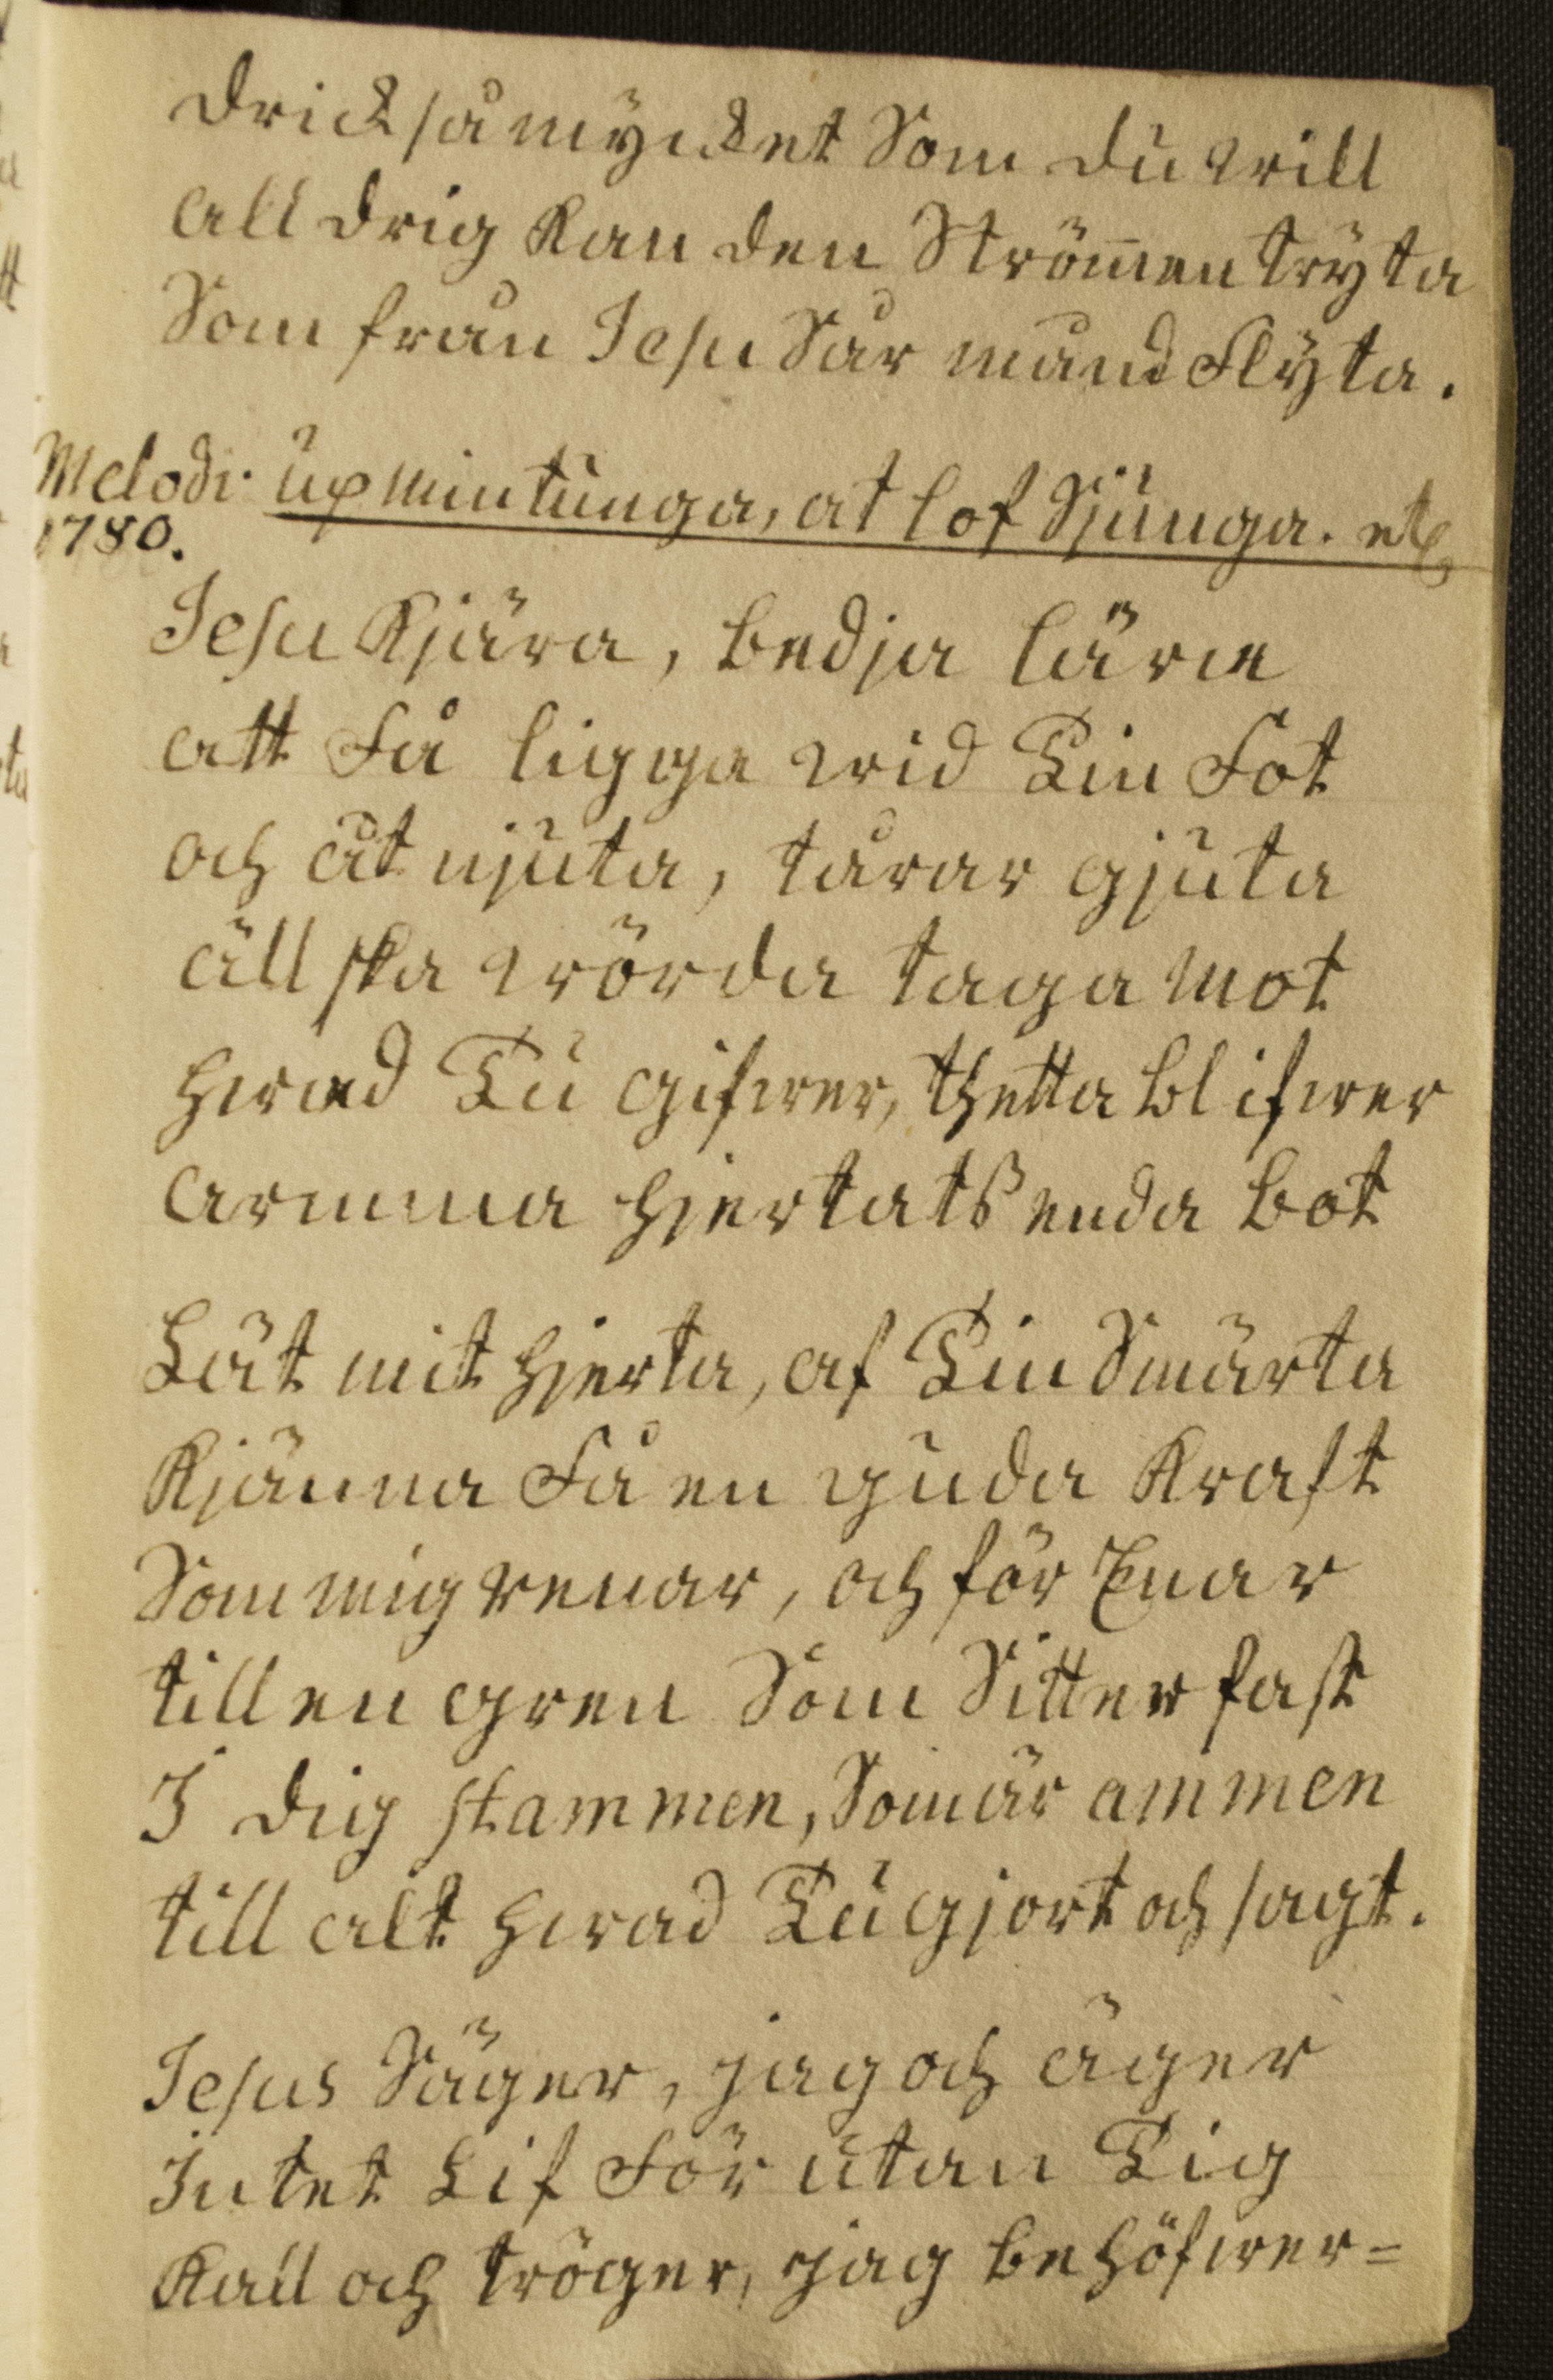 drick så mycket Som du will
alldrig kan den Strömen tryta
Som från Jesu Sår månd flyta.
Melodi. up min tunga, at lof Sjunga. etc
1780.
Jesu kjära, bedja lära
att få ligga wid Tin fot
och åt njuta, tårar gjuta
älska wörda taga mot
hwad Tu gifwer, thetta blifwer
armma hjertatß enda bot
Låt mit hjerta, af Tin Smärta
kjänna få en guda kraft
Som mig renar, och för Enar
till en gren Som Sitter fast
J dig stammen, Som är ammen
till alt hwad Tu gjort och sagt.
Jesus Säger, jag och äger
Jntet Lif för utan Tig
kall och tröger, jag behöfwer=